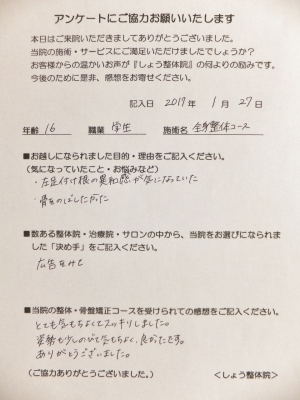 アンケートにご協力お願いいたします
本日はご来院いただきましてありがとうございました。
当院の施術・サービスにご満足いただけましたでしょうか?
お客様からの温かいお声が『しょう整体院』の何よりの励みです。
今後のために是非、感想をお寄せください。
記入日 2019 年 1 月 27 日
年齢 16 職業 学生 施術名 全身整体コース
■お越しになられました目的・理由をご記入ください。
(気になっていたこと・お悩みなど)
・左足付け根の異和感が気になっていた
・骨をのばしたかった
■数ある整体院・治療院・サロンの中から、当院をお選びになられま
した「決め手」をご記入ください。
広告をみて
■当院の整体・骨盤矯正コースを受けられての感想をご記入ください。
とても気もちよくてスッキリしました。
姿勢も少しのびて気もちよく、良かったです。
ありがとうございました。
(ご協力ありがとうございました。) <しょう整体院>